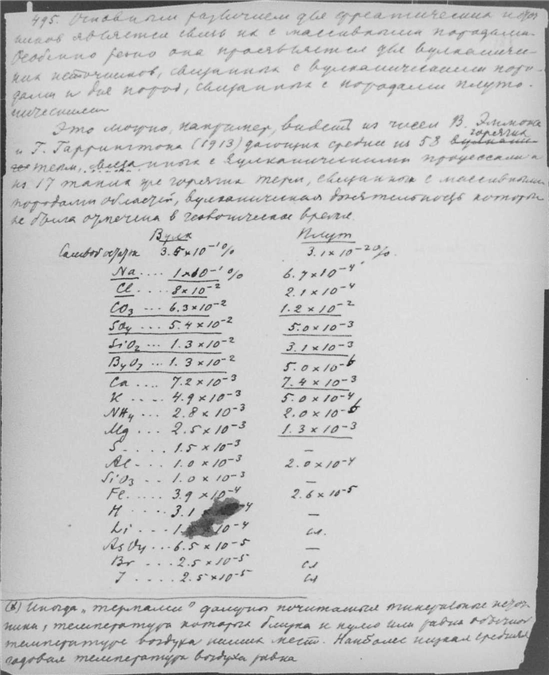 495. Основным различием для фреатических источ
ников является связь их с массивными породами.
Особенно резко она проявляется для вулканичес
ких источников, связанных с вулканическими поро
дами и для пород, связанных с породами плуто
ническими.
Это можно, например, видеть из чисел В. Эммонса
и Г. Гаррингтона (1913) дающих средние из 58 горячих
терм, связанных с вулканическими процессами и
из 17 таких же горячих терм, связанных с массивными
породами областей, вулканическая деятельность которых
не была отмечена в геологическое время.
Вулк Плут
Солевой остаток 3.5×10⁻¹% 3.1×10⁻²%
Na .... 1×10⁻¹% 6.7×10⁻⁴
Cl .... 8×10⁻² 2.1×10⁻⁴
CO₃ ... 6.3×10⁻² 1.2×10⁻²
SO₄ ... 5.4×10⁻² 5.0×10⁻³
SiO₂ ... 1.3×10⁻² 3.1×10⁻³
B₄O₇ ... 1.3×10⁻² 5.0×10⁻⁶
Ca .... 7.2×10⁻³ 7.4×10⁻³
K .... 4.9×10⁻³ 5.0×10⁻⁴
NH₄ ... 2.8×10⁻³ 2.0×10⁻⁶
Mg .... 2.5×10⁻³ 1.3×10⁻³
S .... 1.5×10⁻³ —
Al .... 1.0×10⁻³ 2.0×10⁻⁴
SiO₃ ... 1.0×10⁻³ —
Fe .... 3.9×10⁻⁴ 2.6×10⁻⁵
H .... 3.1 ⁻⁴ —
Li .... ⁻⁴ сл.
AsO₄ ... 6.5×10⁻⁵ —
Br ... 2.5×10⁻⁵ сл
J .... 2.5×10⁻⁵ сл
(*) Иногда „термами" должны почитаться минеральные источ
ники, температура которых близка к нулю или равна обычной
температуре воздуха наших мест. Наиболее низкая средняя
годовая температура воздуха равна